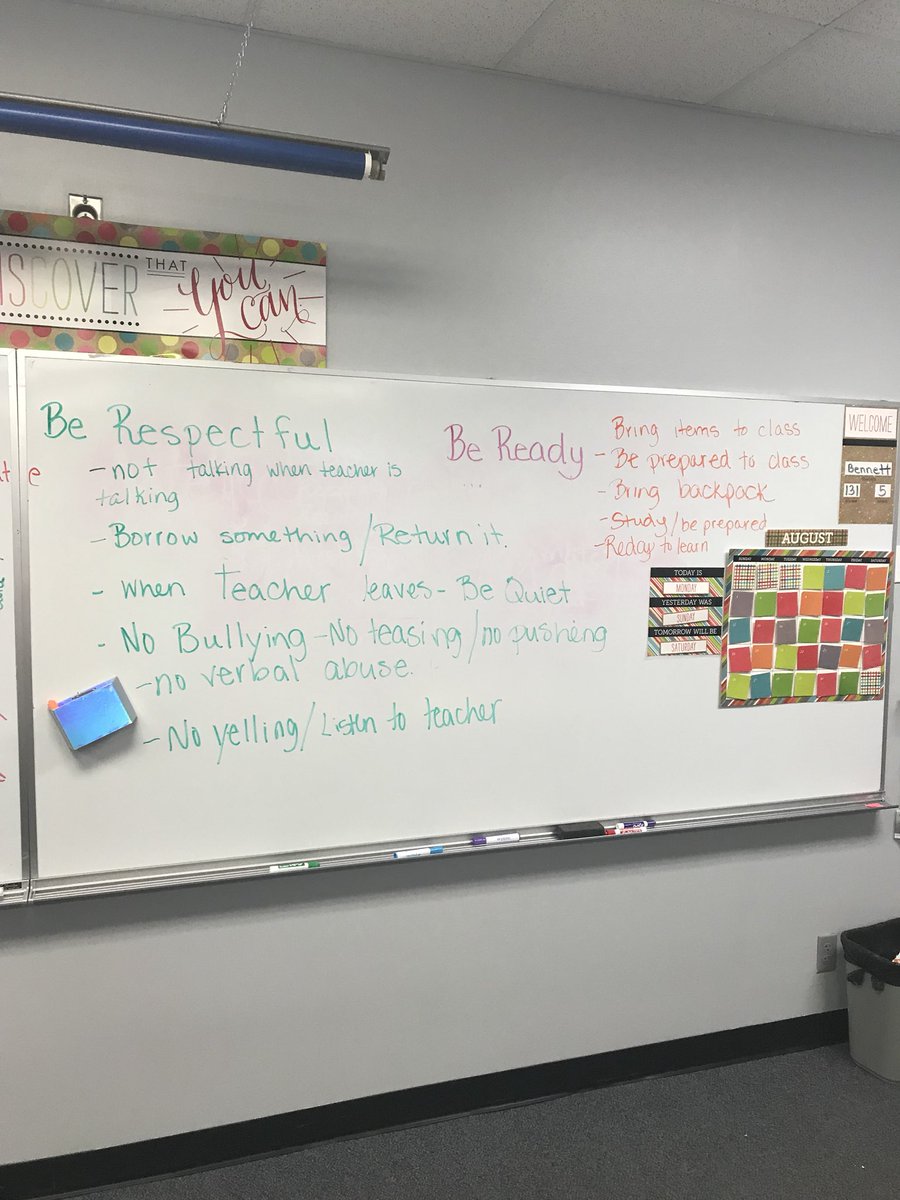 ISCOVER THAT you can
Be Respectful
- not talking when teacher is
talking
- Borrow something / Return it.
- when Teacher leaves - Be Quiet
- No Bullying - No teasing / no pusheng
- no verbal abuse.
- No yelling / Listen to teacher
Be Ready
...
Bring items to class
- Be prepared to class
- Bring backpack
- Study / be prepared
- Reday to learn
WELCOME
Bennett
131 5
AUGUST
SUNDAY MONDAY TUESDAY WEDNESDAY THURSDAY FRIDAY SATURDAY
TODAY IS
MONDAY
YESTERDAY WAS
SUNDAY
TOMORROW WILL BE
SATURDAY